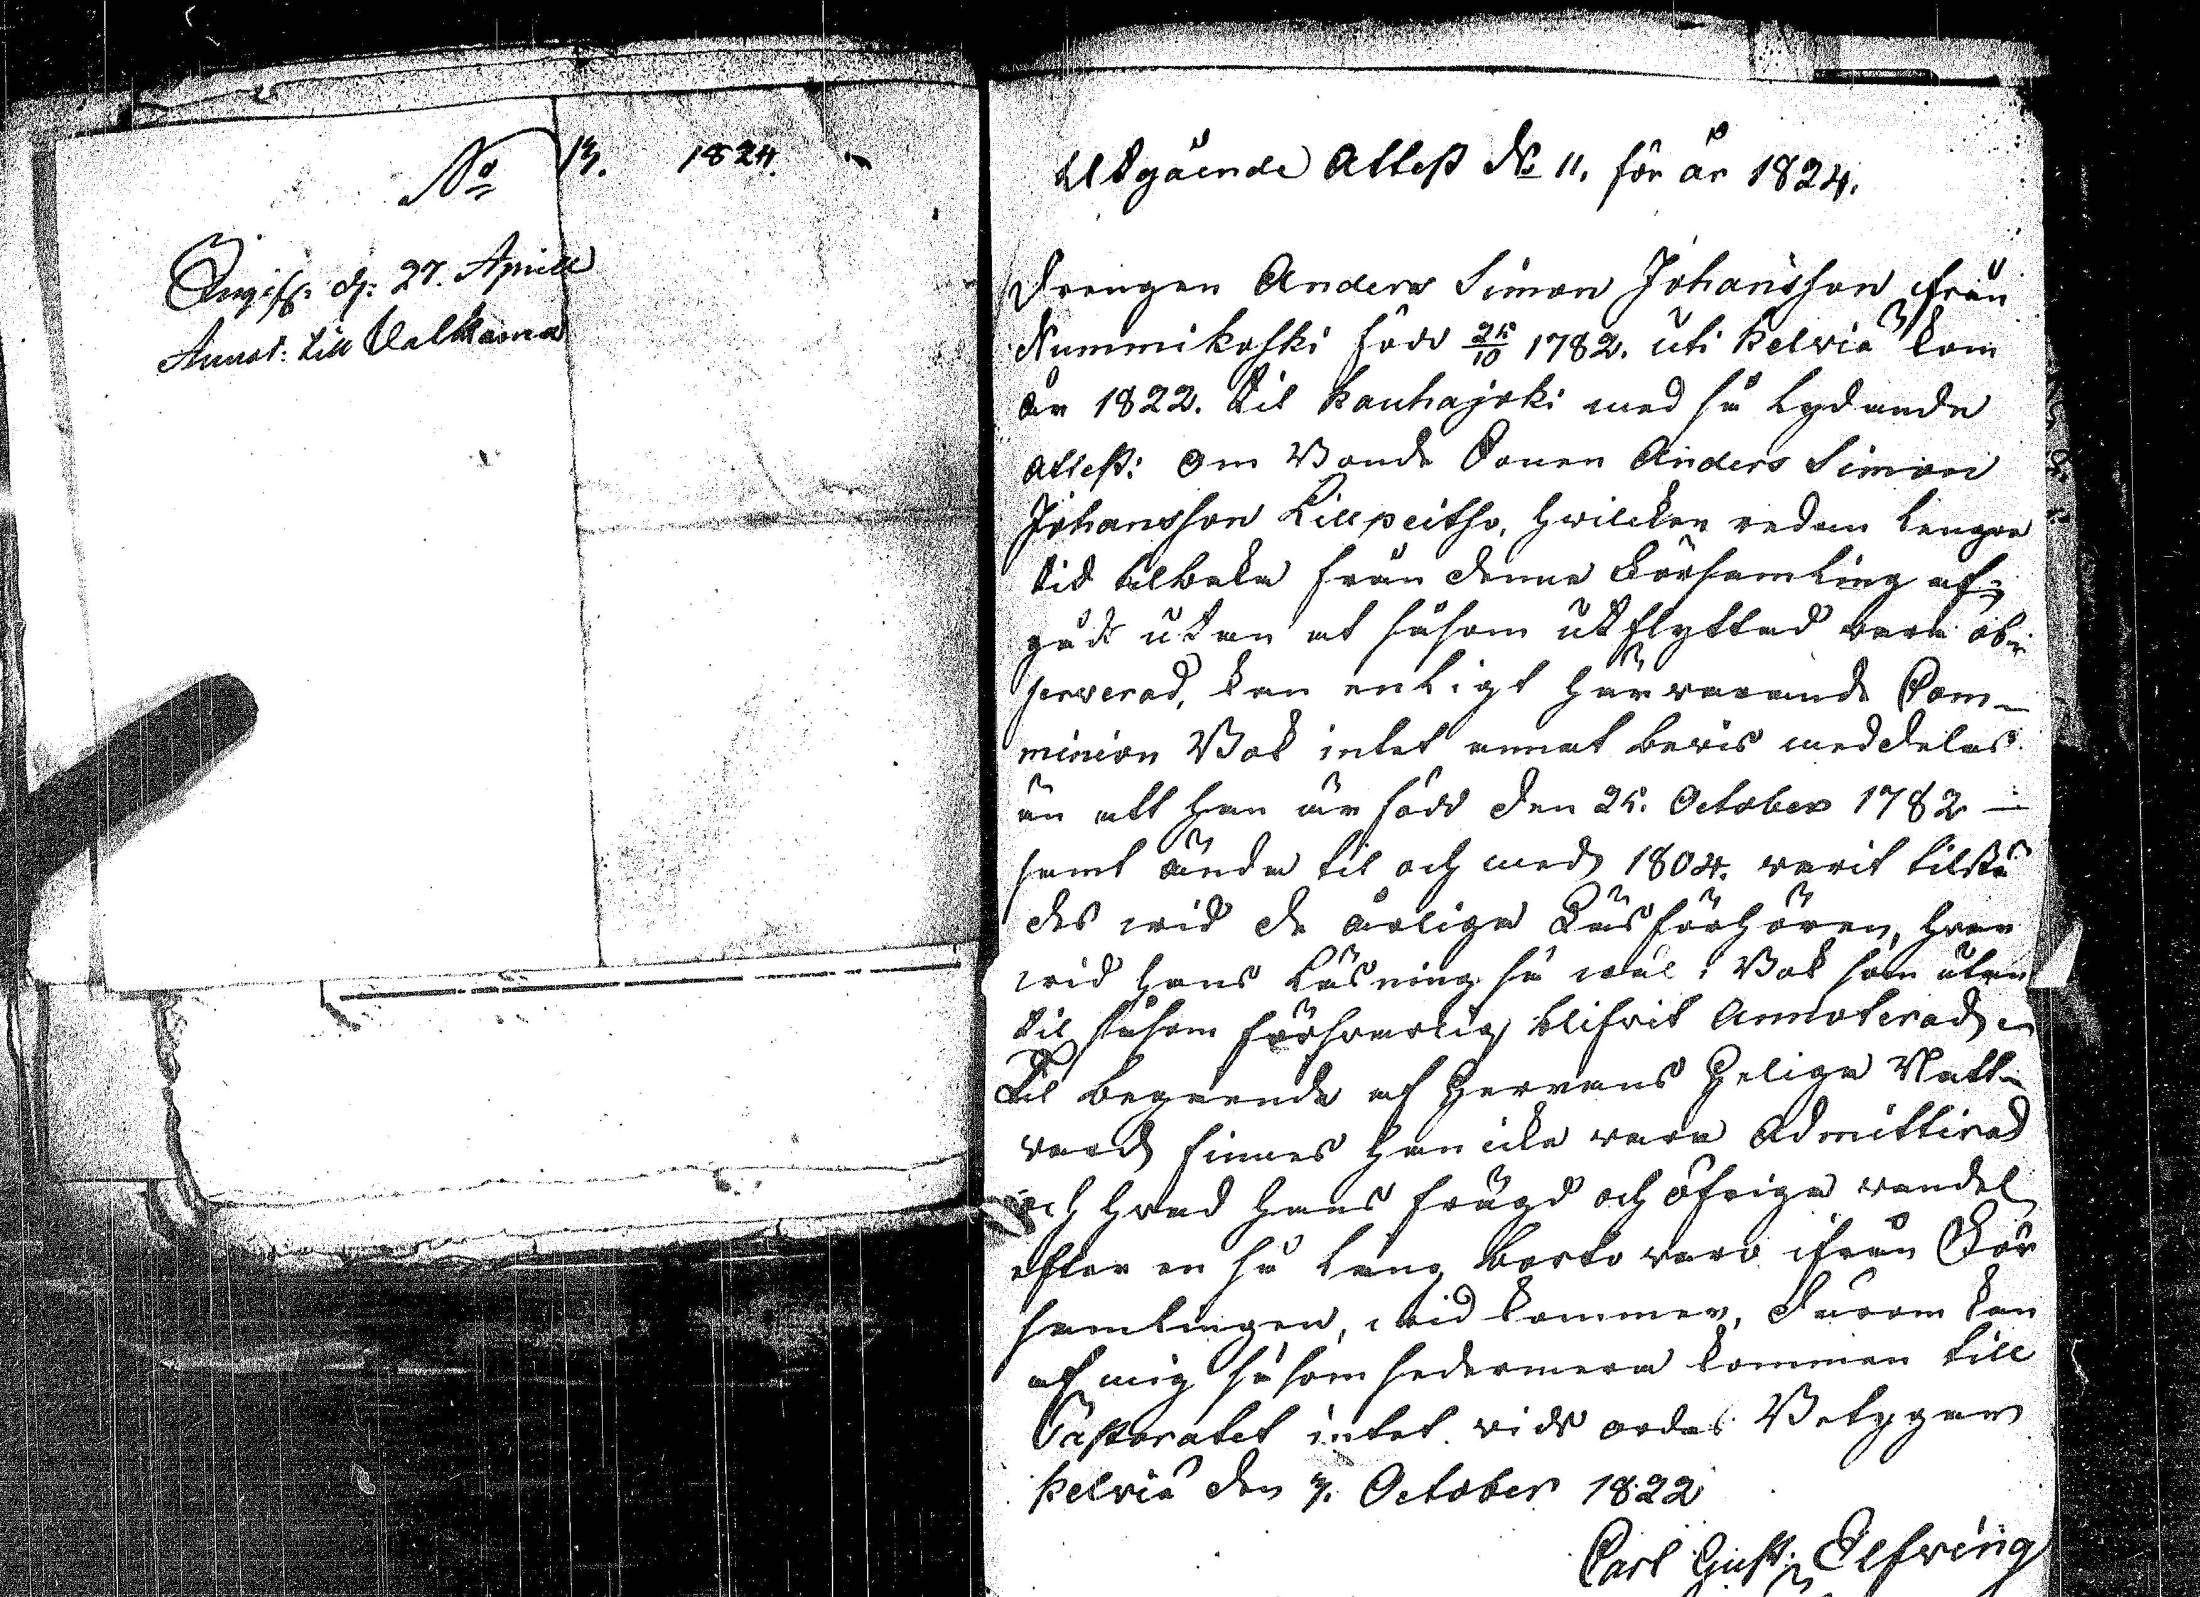 No 13. 1824.
Angif: d: 27. Aprill
Annot: till Valkama
Utgående Attest No 11. för år 1824.
Drengen Anders Simon Johansson ifrån
Nummikoski född 25/10 1782. uti Kelviå kom
år 1822. til Kauhajoki med så lydande
attest: Om Bonde Sonen Anders Simon
Johansson Lillpeitso, hwilcken redan lengre
tid tilbaka från denna Församling af-
gådt utan at såsom utflyttad vara ob-
serverad, kan enligt härwarande Com-
minion Bok intet annat bewis meddelas
än att han är född den 25. October 1782 —
samt ända til och med 1804. warit tilstä
des wid de årliga Läsförhören, hvar
wid hans Läsning så wäl i Bok som utan
til såsom försvarlig blifvit Annoterad
Til begående af Herrans Helige Natt-
vard finnes han icke vara Admitterad
och hvad hans frägd och öfriga vandel
efter en så lång borto varo ifrån För
samlingen, wid kommer, därom kan
af mig såsom sedermera kommen till
Pastoratet intet vidr ordas Betygar
Kelviå den 7. October 1822
Carl Gust: Elfwing